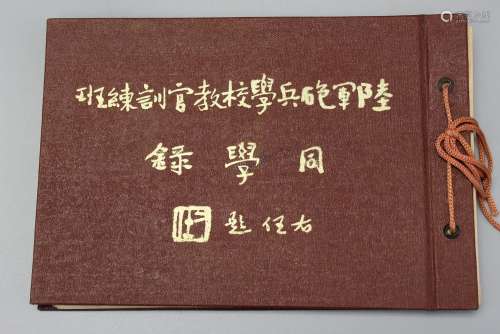 陸軍砲兵學校教官訓練班
同學錄
右任題